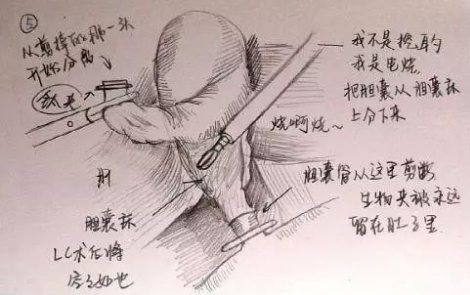 ⑤
从剪掉的那一头
开始分离
我不是挖的
我是电烧
把胆囊从胆囊床
上分下来
烧啊烧~
胆囊管从这里剪断
生物夹被永远
留在肚子里
肝
胆囊床
LC术后将